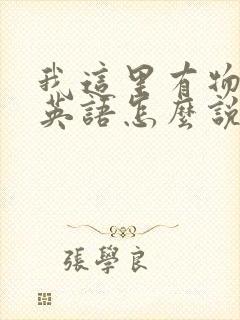 我這里有物
英語怎麼說
張學良